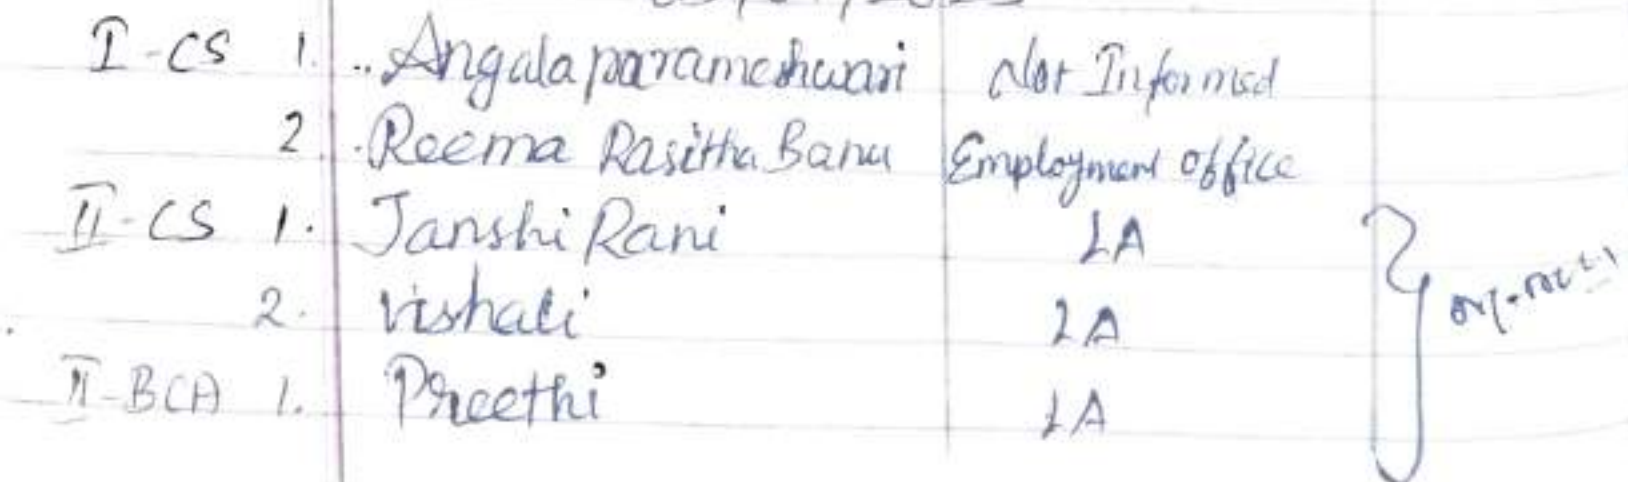 I-CS 1. Angalaparameshwari Not Informed
2. Reema Rasitha Banu Employment office
II-CS 1. Janshi Rani LA
2. Vishali LA
II-BCA 1. Preethi LA